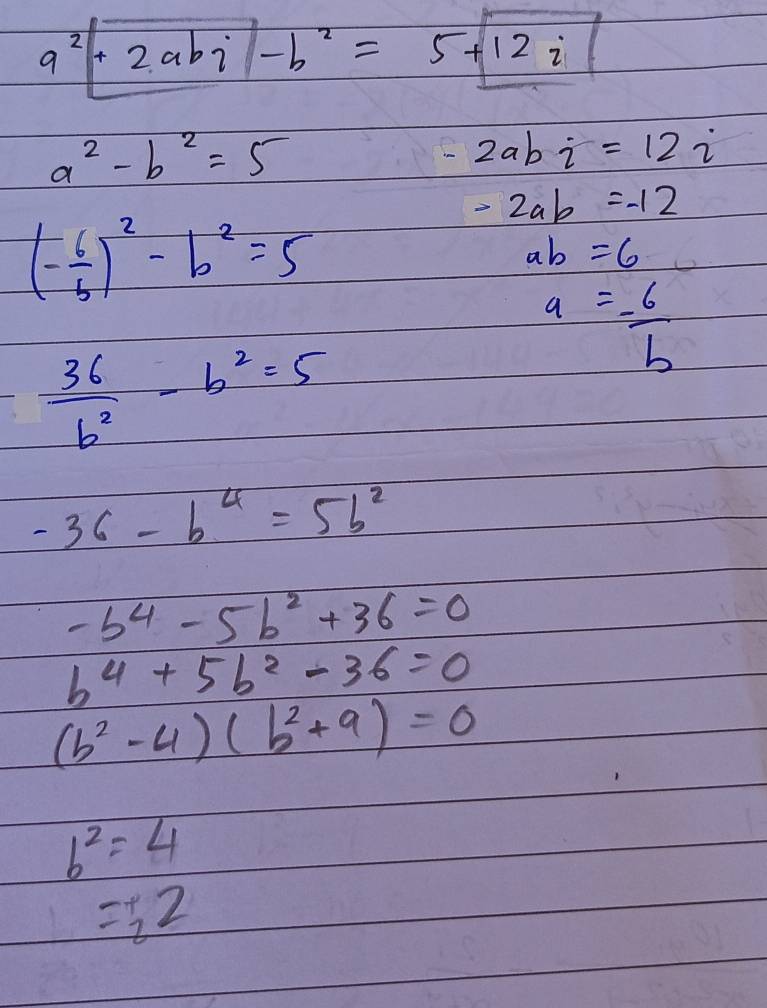 a² + 2abi - b² = 5 + 12i
a² - b² = 5
- 2abi = 12i
- 2ab = -12
(-6/b)² - b² = 5
ab = 6
a = -6/b
36/b² - b² = 5
-36 - b⁴ = 5b²
-b⁴ - 5b² + 36 = 0
b⁴ + 5b² - 36 = 0
(b² - 4)(b² + 9) = 0
b² = 4
= ± 2